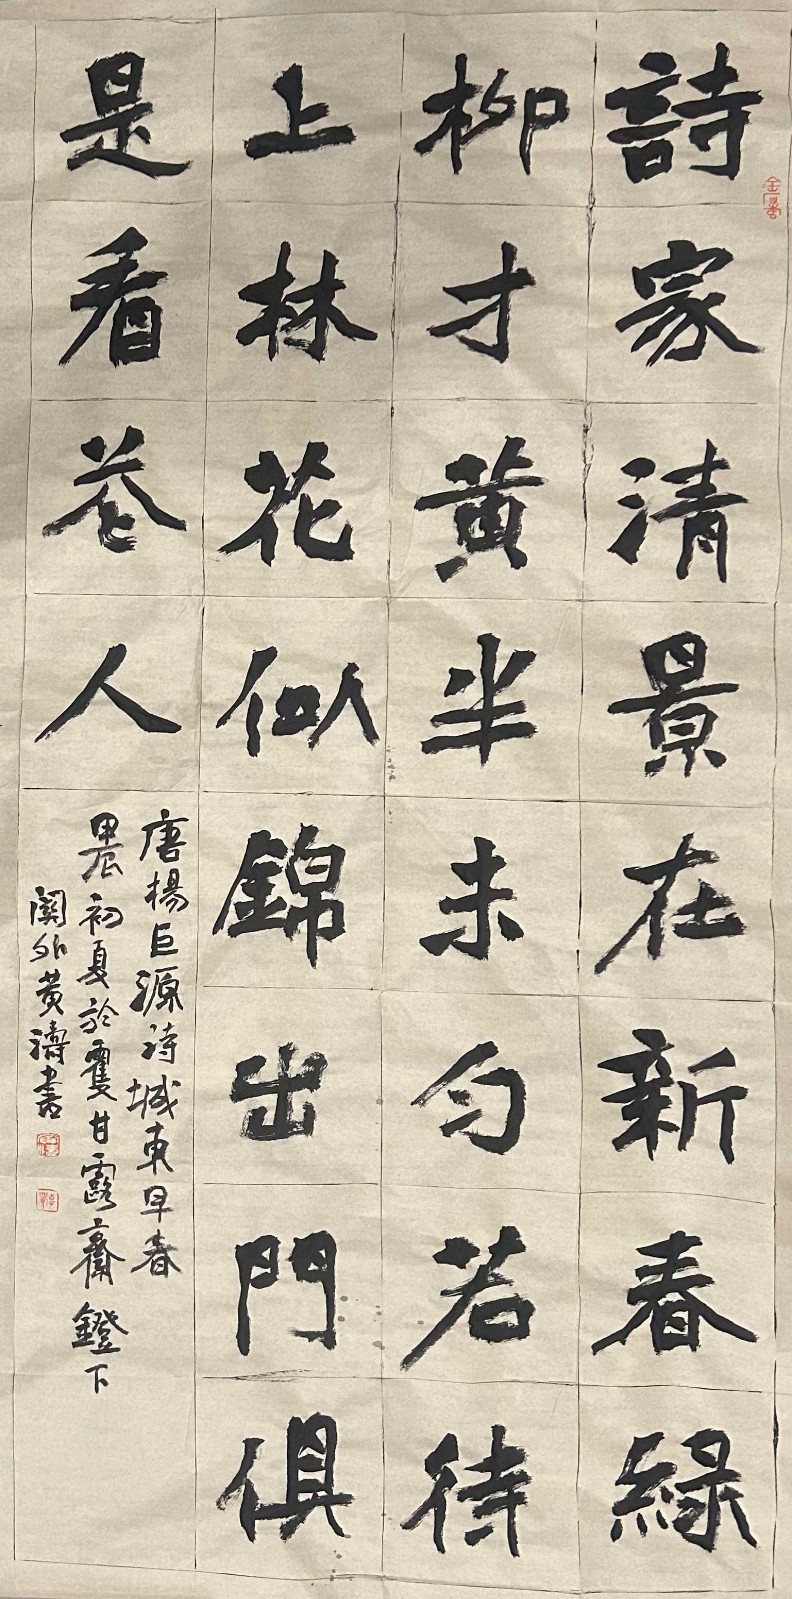 詩家清景在新春綠
柳才黃半未勻若待
上林花似錦出門俱
是看花人
唐楊巨源詩城東早春
甲辰初夏於雙甘露齋鐙下
關外黃濤書